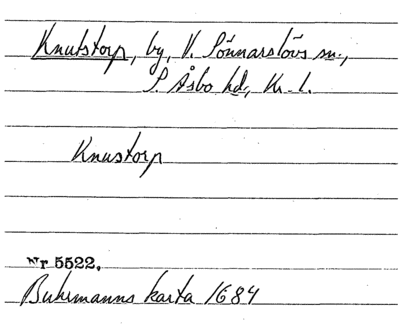 Knutstorp, by, V. Sönnarslövs sn.,
S. Åsbo hd, Kr. l.
Knustorp
Nr 5522.
Buhrmanns karta 1684